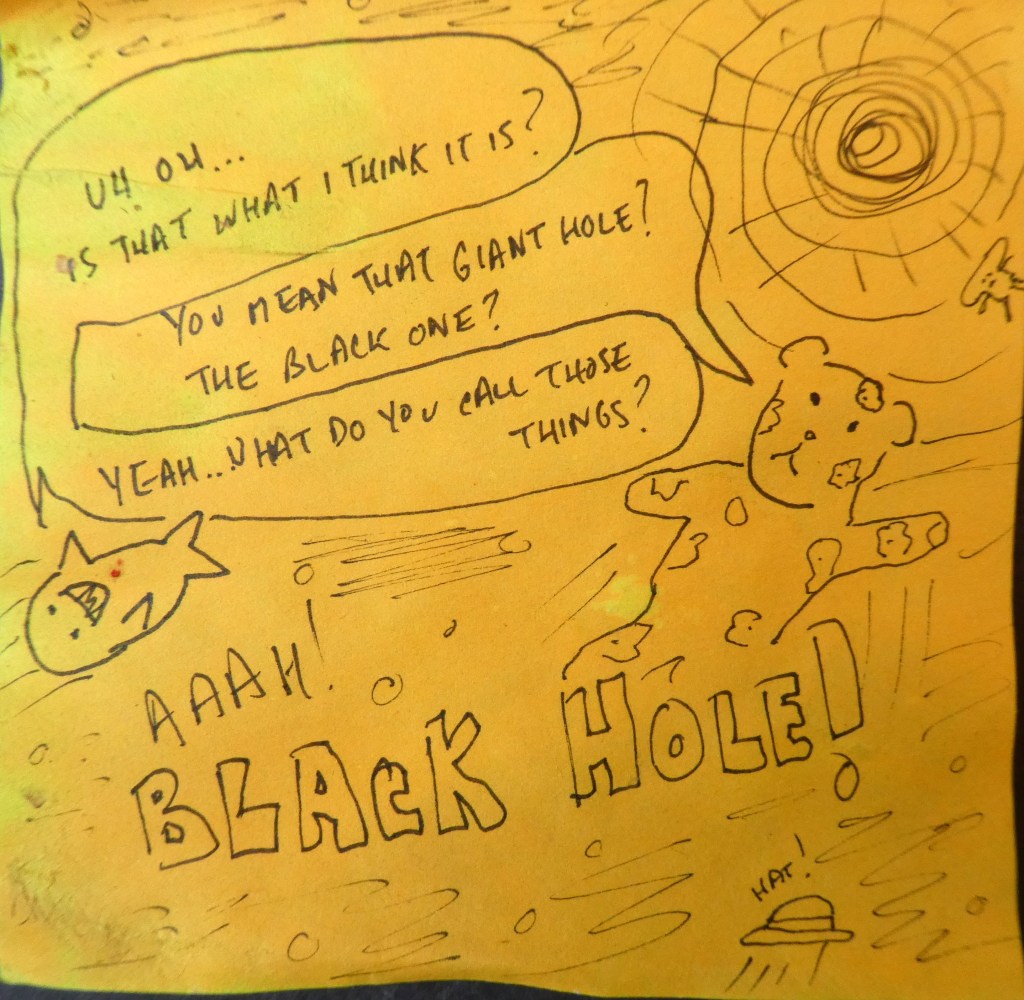 UH OH...
IS THAT WHAT I THINK IT IS?
YOU MEAN THAT GIANT HOLE?
THE BLACK ONE?
YEAH...WHAT DO YOU CALL THOSE
THINGS?
AAAH!
BLACK HOLE!
HAT!